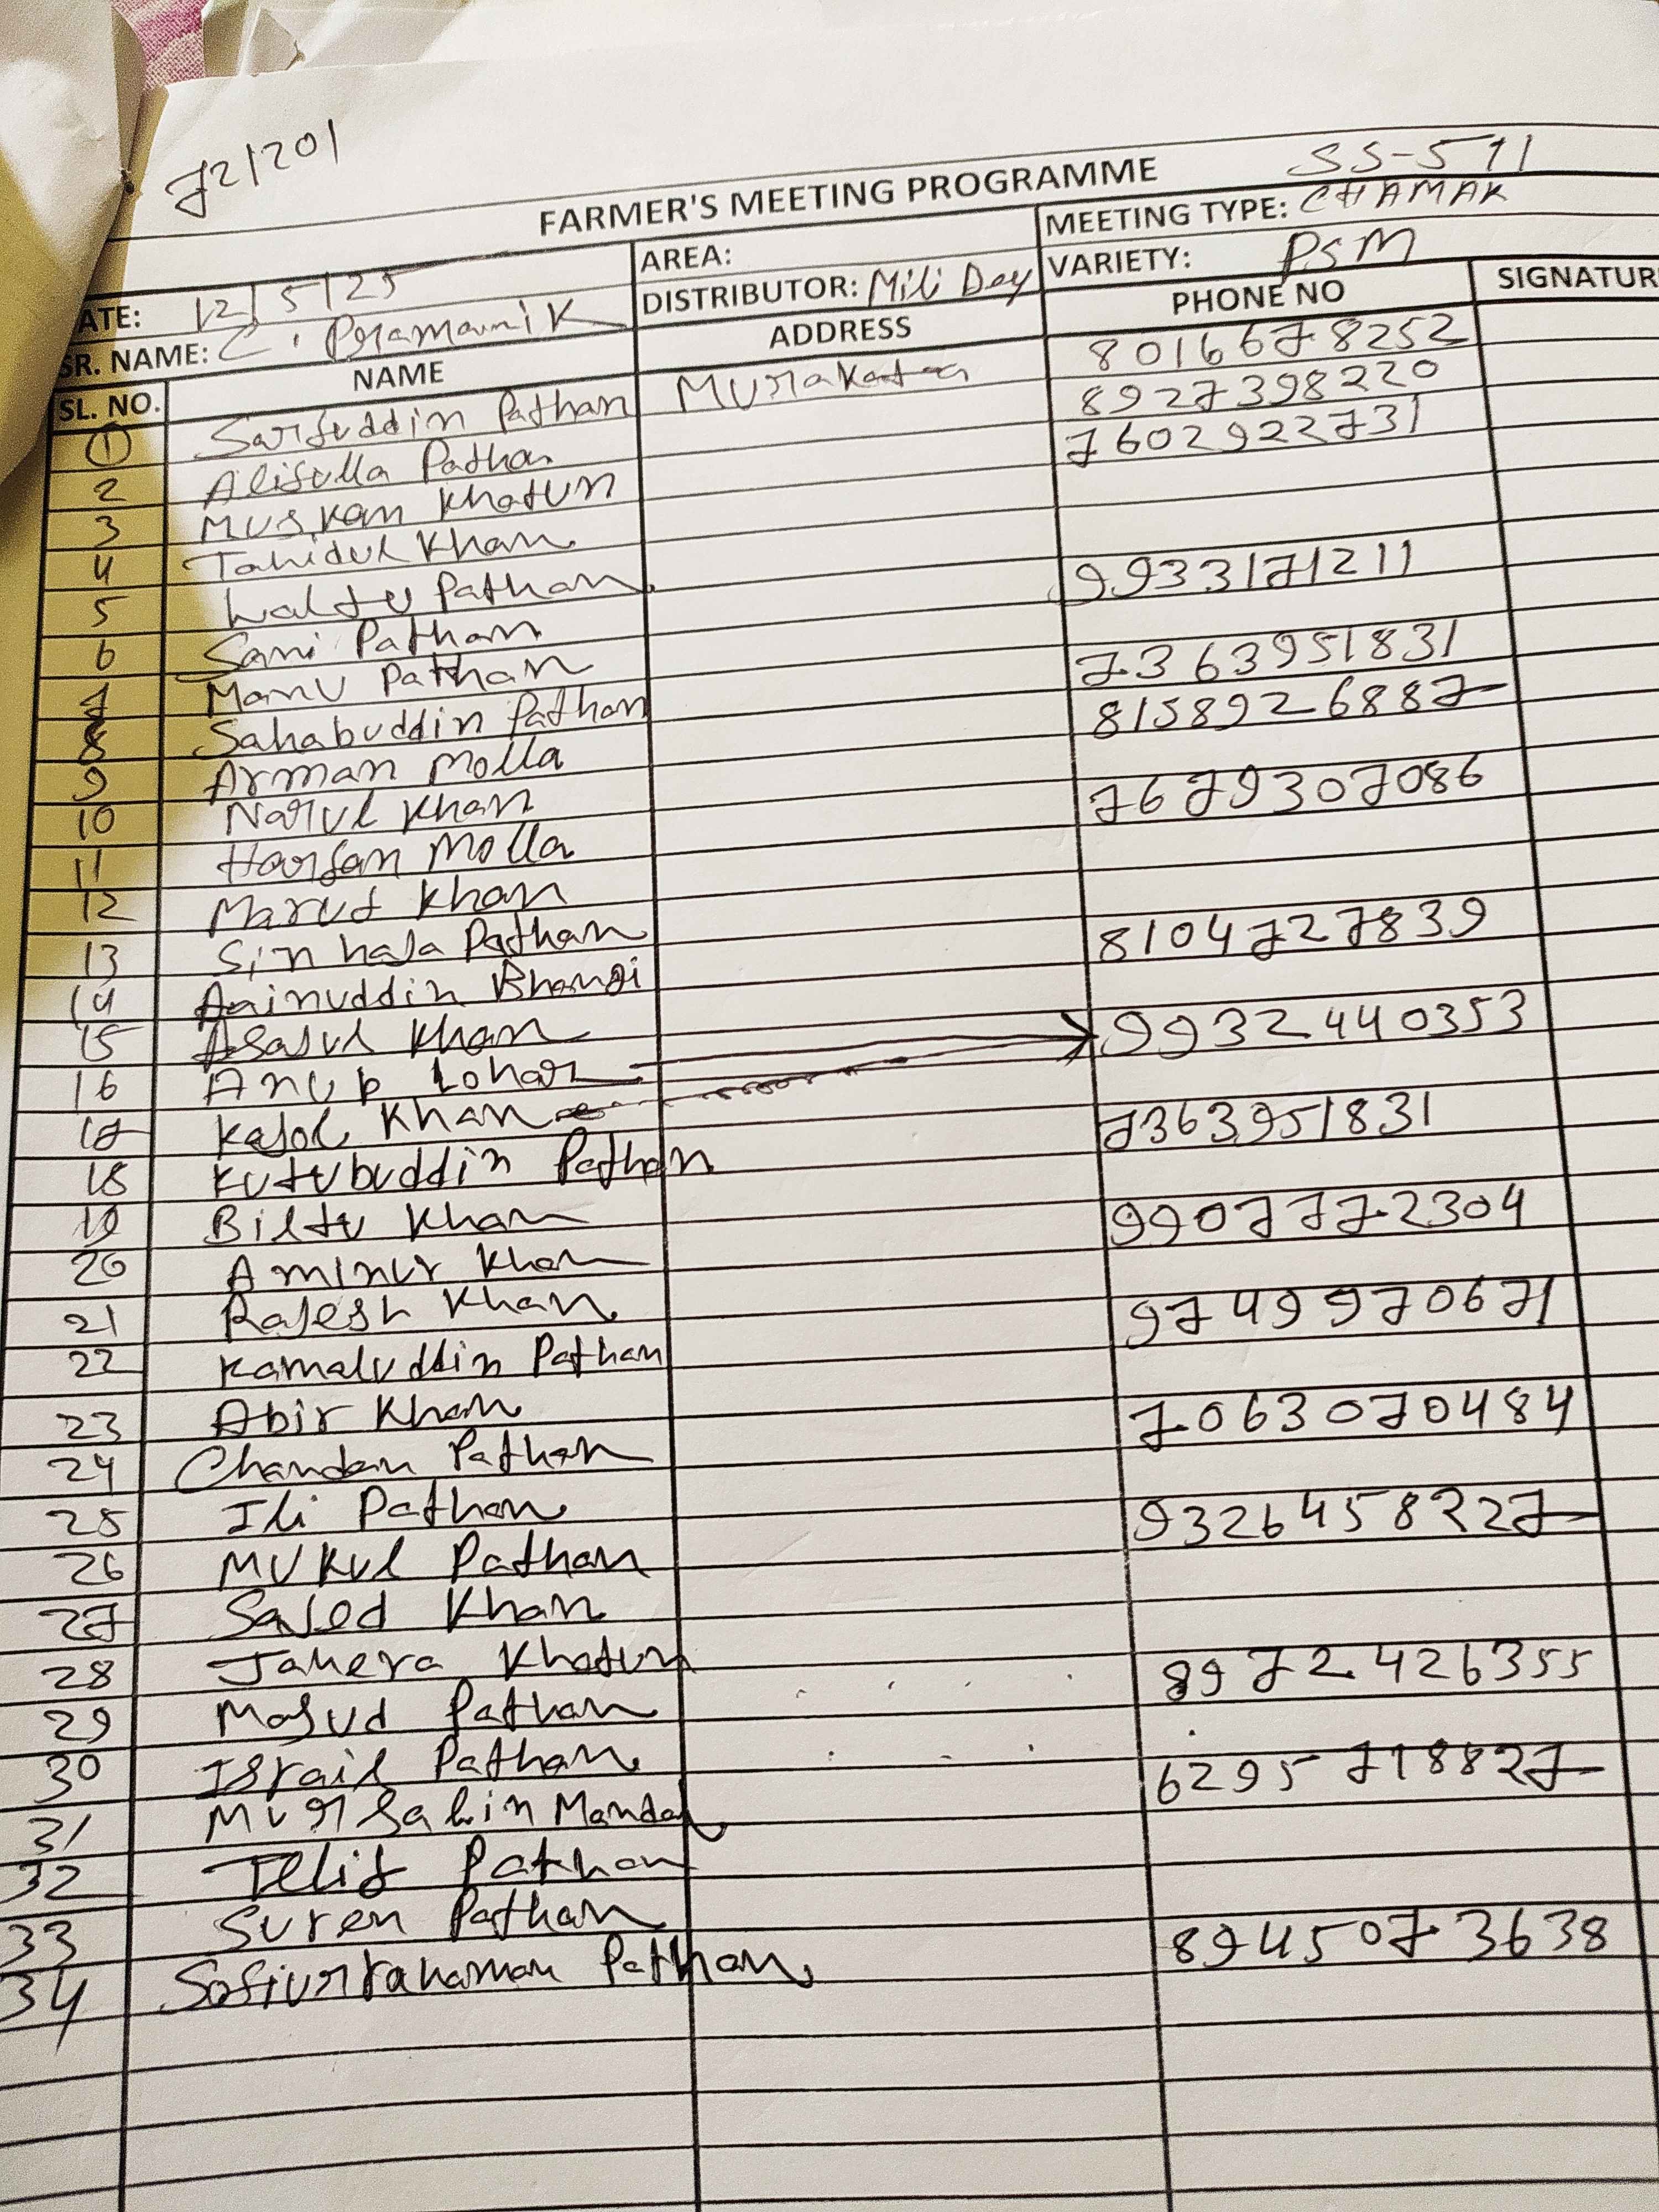 72/201
FARMER'S MEETING PROGRAMME SS-571
ATE: 12/5/25 AREA: MEETING TYPE: CHAMAK
SR. NAME: C. Pramanik DISTRIBUTOR: Mili Dey VARIETY: PSM
SL. NO. NAME ADDRESS PHONE NO SIGNATUR
1 Sarfuddin Pathan Murakata 8016678252
2 Alifulla Pathan 8927398220
3 Muskan Khatun 7602922731
4 Tahidul Khan
5 Laltu Pathan
6 Sani Pathan 9933171211
7 Manu Pathan
8 Sahabuddin Pathan 7363951831
9 Arman Molla 8158926887
10 Narul Khan
11 Harfan Molla 7679307086
12 Marut Khan
13 Sin haja Pathan
14 Aainuddin Bhangi 8104727839
15 Asajul Khan
16 Anup Lohar 9932440353
17 Kajol Khan
18 Kutubuddin Pathan 7363951831
19 Biltu Khan
20 Aminur Khan 9907772304
21 Rajesh Khan
22 Kamaluddin Pathan 9749970671
23 Abir Khan
24 Chandan Pathan 7063070484
25 Ili Pathan
26 Mukul Pathan 9326458227
27 Sajed Khan
28 Jahera Khatun
29 Masud Pathan 8972426355
30 Israil Pathan
31 Mursalin Mandal 6295718827
32 Telif Pathan
33 Suren Pathan
34 Sofiurrahaman Pathan 8945073638